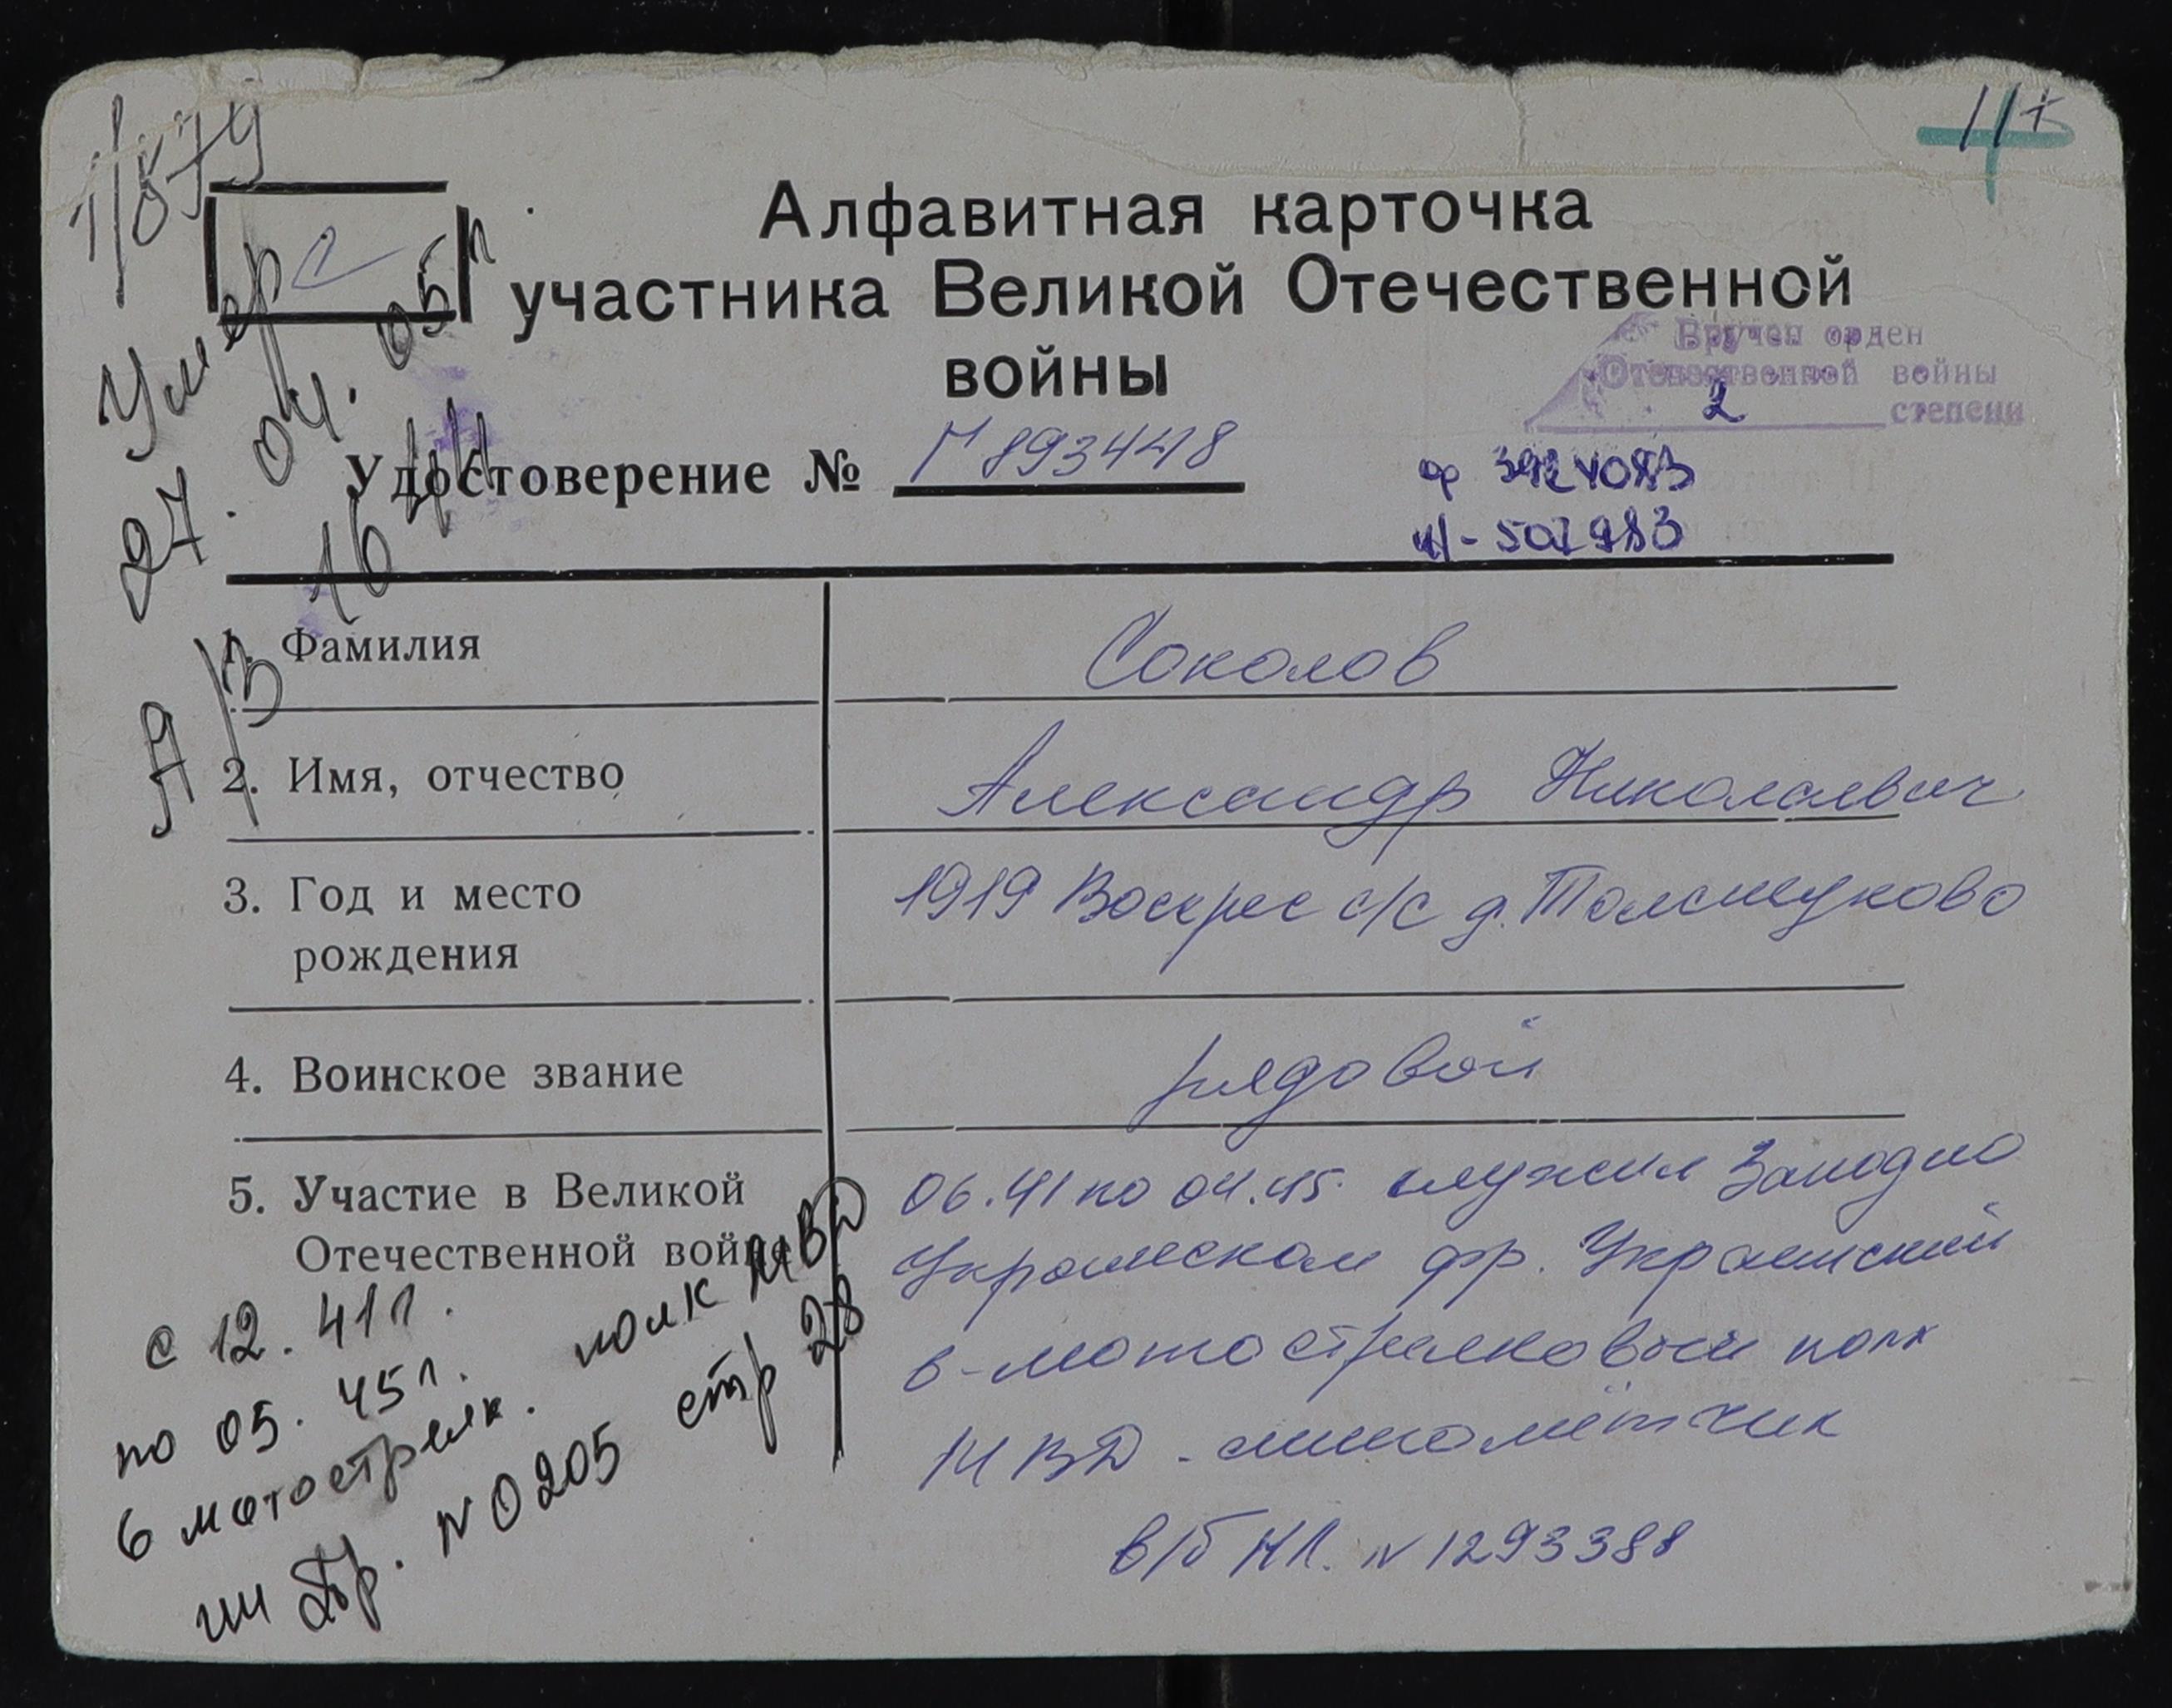 1/879
с
11+
Алфавитная карточка
участника Великой Отечественной
войны
Вручен орден
Отечественной войны
2 степени
Умер
27. 04. 05 г
Удостоверение № Г 893448
16
A/3
1. Фамилия Соколов
2. Имя, отчество Александр Николаевич
3. Год и место 1919 Воскрес с/с д. Толстуково
рождения
4. Воинское звание рядовой
5. Участие в Великой
Отечественной войне
06.41 по 04.45. служил Западно
Украинском фр. Украинский
6-мотострелковый полк
МВД - миномётчик
в/б НЛ. N 1293388
с 12. 41 г.
по 05. 45 г.
6 мотострелк. полк МВД
N 0205 стр 28